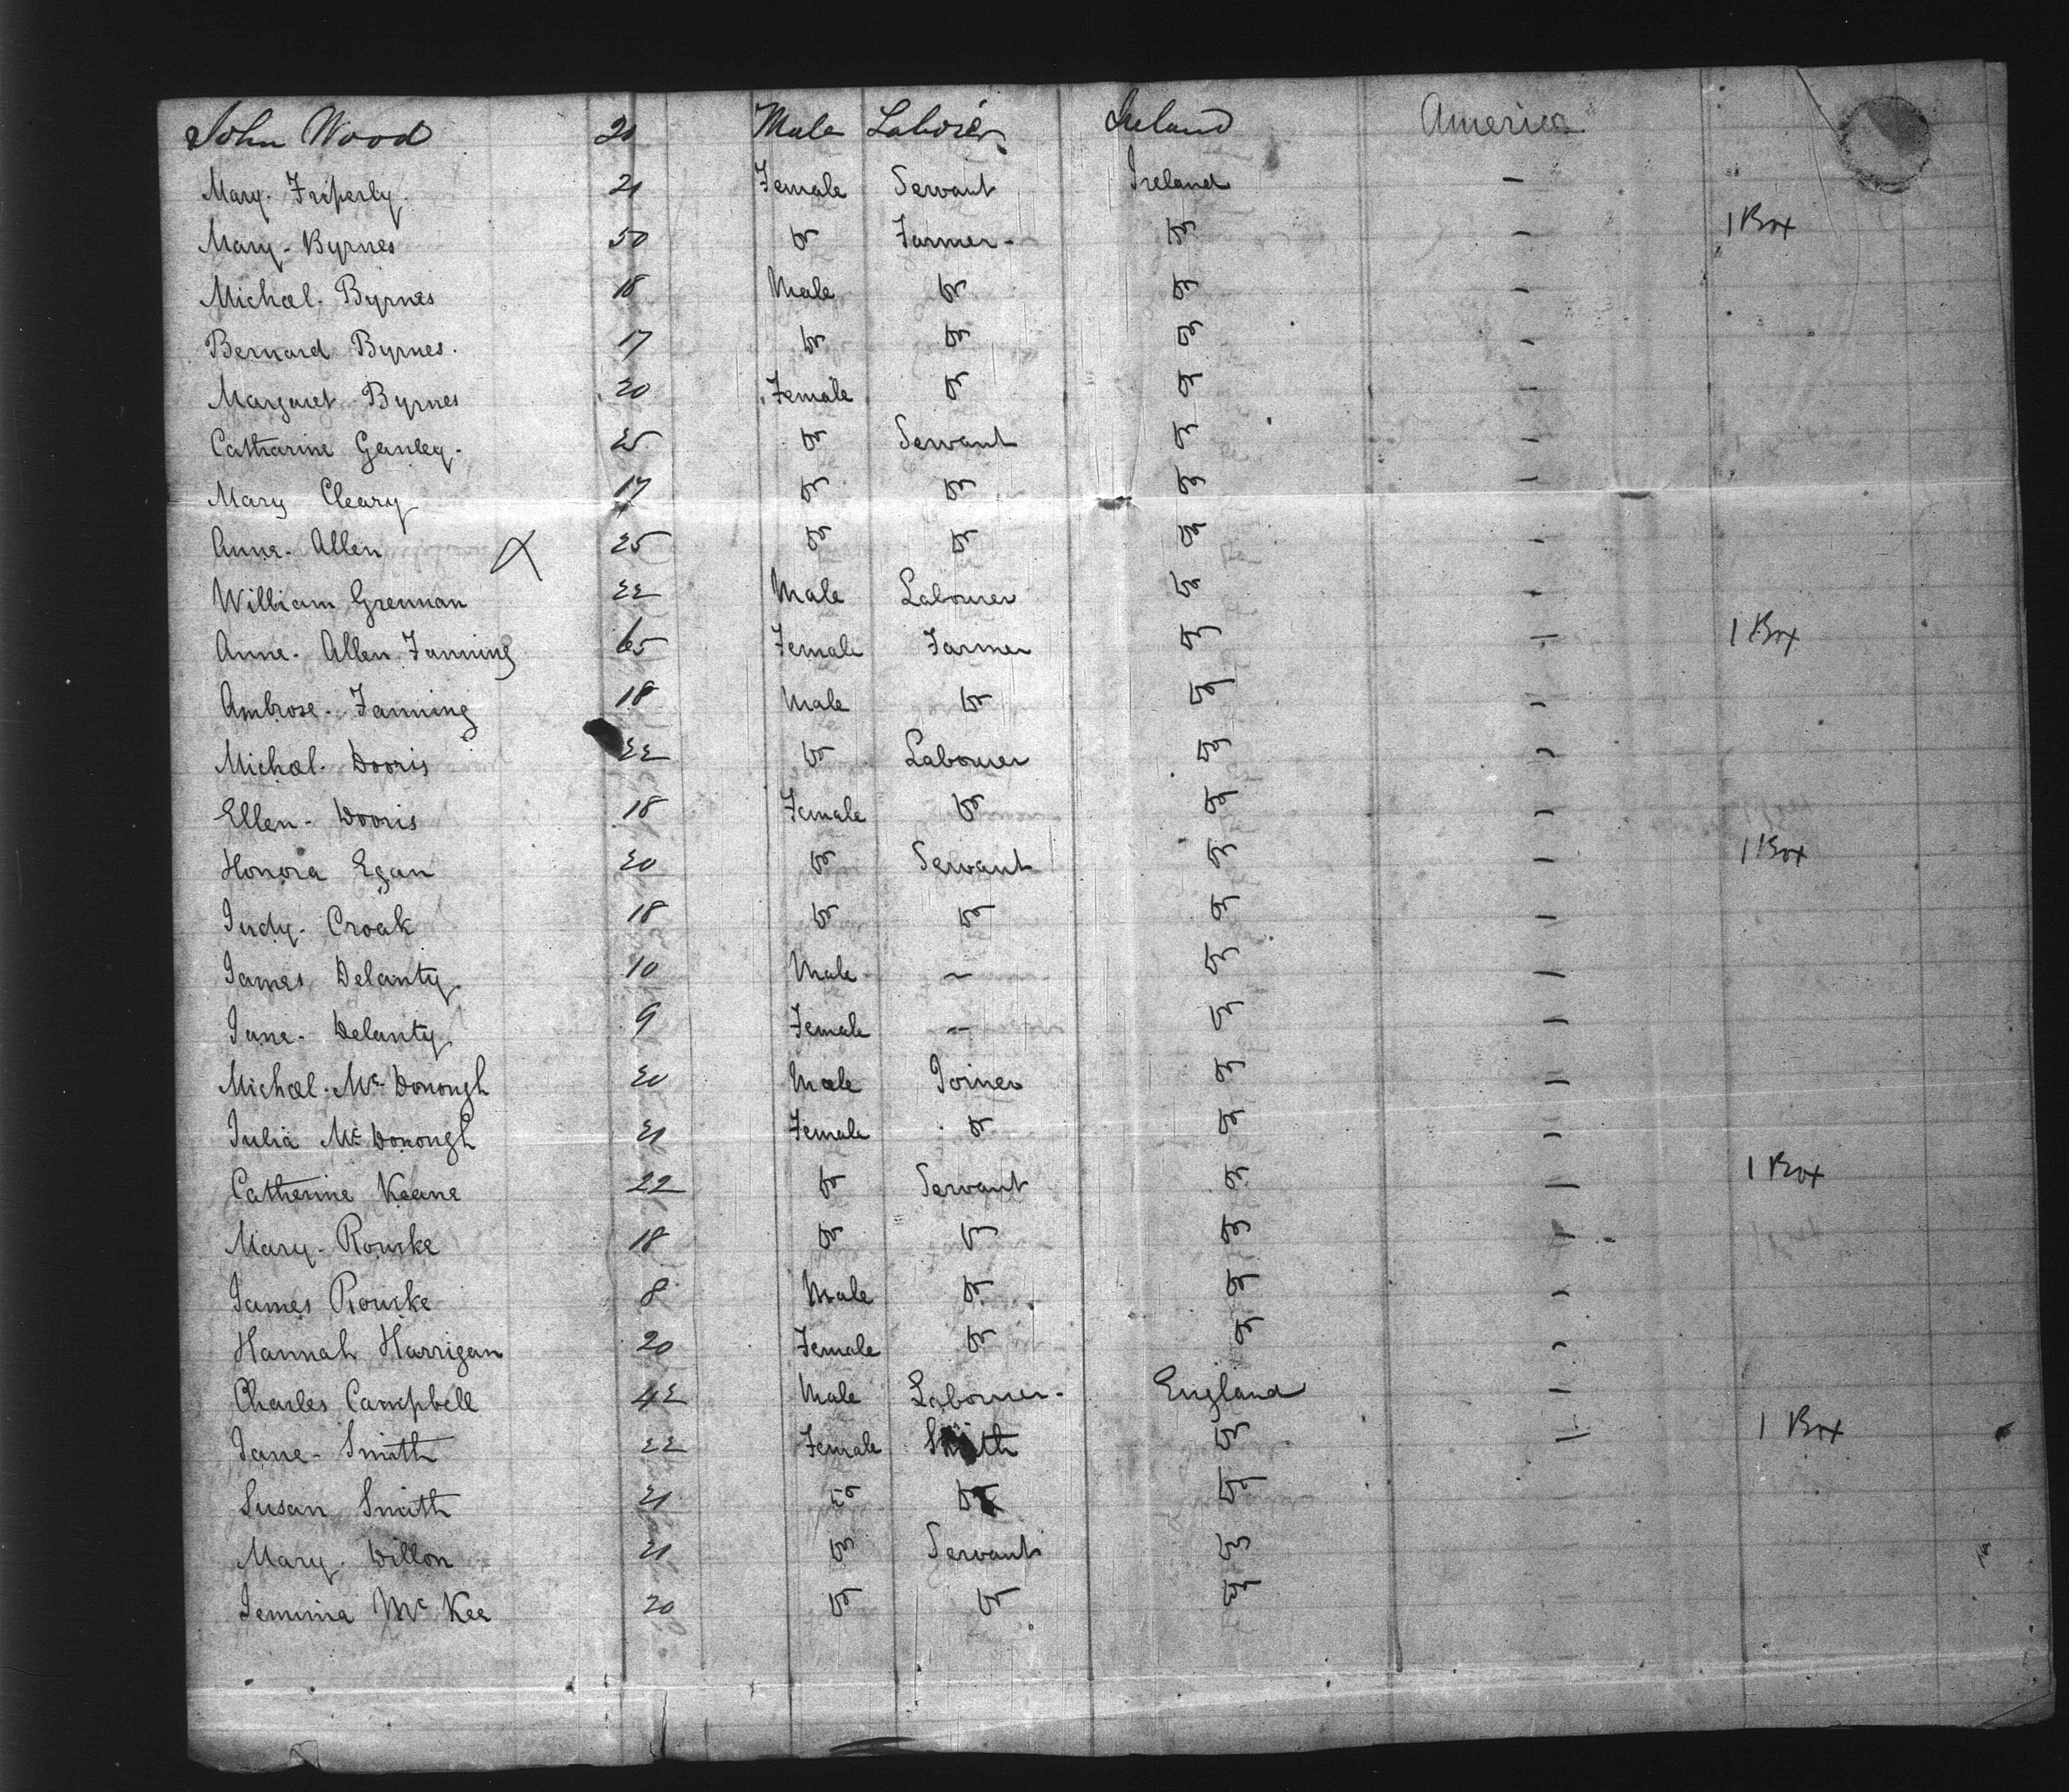 John Wood 20 Male Laborer Ireland America
Mary. Friperly. 21 Female Servant Ireland –
Mary - Byrnes 50 Do Farmer - Do – 1 Box
Michæl. Byrnes 18 Male Do Do –
Bernard Byrnes. 17 Do Do Do –
Margaret Byrnes 20 Female Do Do –
Catharine Ganley. 25 Do Servant Do –
Mary Cleary 17 Do Do Do –
Anne. Allen X 25 Do Do Do –
William Grennan 22 Male Labourer Do –
Anne. Allen Fanning 65 Female Farmer Do – 1 Box
Ambrose. Fanning 18 Male Do Do –
Michæl. Dooris 22 Do Labourer Do –
Ellen - Dooris 18 Female Do Do –
Honora Egan 20 Do Servant Do – 1 Box
Judy. Croak 18 Do Do Do –
James Delanty. 10 Male – Do –
Jane - Delanty 9 Female – Do –
Michæl. Mc Donough 20 Male Joiner Do –
Julia Mc Donough 21 Female Do Do –
Catherine Keane 22 Do Servant Do – 1 Box
Mary - Rourke 18 Do Do Do –
James Rourke 8 Male Do Do –
Hannah Harrigan 20 Female Do Do –
Charles Campbell 42 Male Labourer - England –
Jane - Smith 22 Female Smith Do – 1 Box
Susan Smith 21 Do Do Do
Mary. Dillon 21 Do Servant Do
Jemima Mc Kee 20 Do Do Do